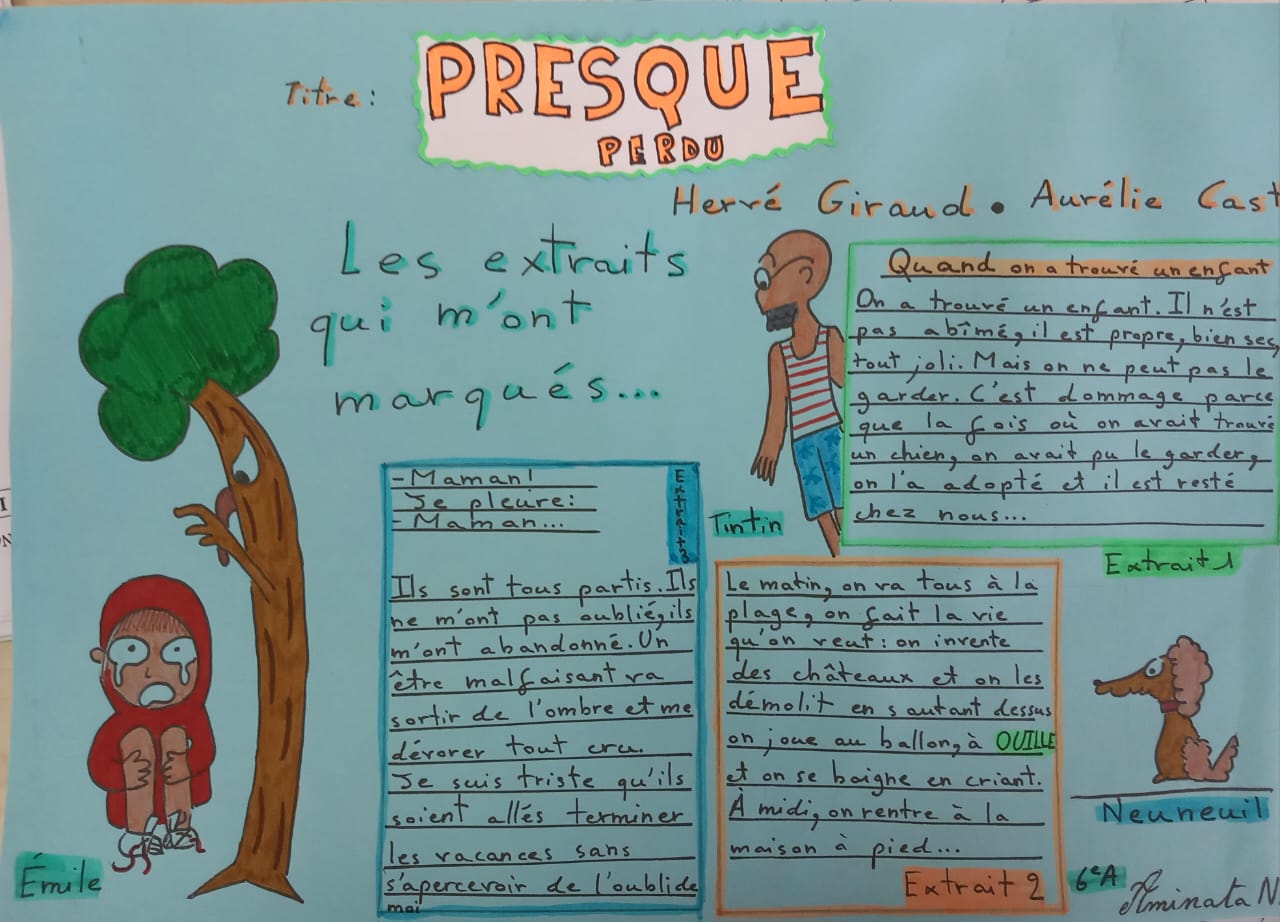 Titre :
PRESQUE
PERDU
Hervé Giraud. Aurélie Cast
Les extraits
qui m'ont
marqués...
Quand on a trouvé un enfant
On a trouvé un enfant. Il n'est
pas abîmé, il est propre, bien sec,
tout joli. Mais on ne peut pas le
garder. C'est dommage parce
que la fois où on avait trouvé
un chien, on avait pu le garder,
on l'a adopté et il est resté
chez nous...
Extrait 1
Tintin
- Maman !
Je pleure :
- Maman...
Extrait 3
Ils sont tous partis. Ils
ne m'ont pas oublié, ils
m'ont abandonné. Un
être malfaisant va
sortir de l'ombre et me
dévorer tout cru.
Je suis triste qu'ils
soient allés terminer
les vacances sans
s'apercevoir de l'oubli de
moi
Le matin, on va tous à la
plage, on fait la vie
qu'on veut : on invente
des châteaux et on les
démolit en sautant dessus
on joue au ballon, à OUILLE
et on se baigne en criant.
À midi, on rentre à la
maison à pied...
Extrait 2
Neuneuil
Émile
6eA
Aminata N.